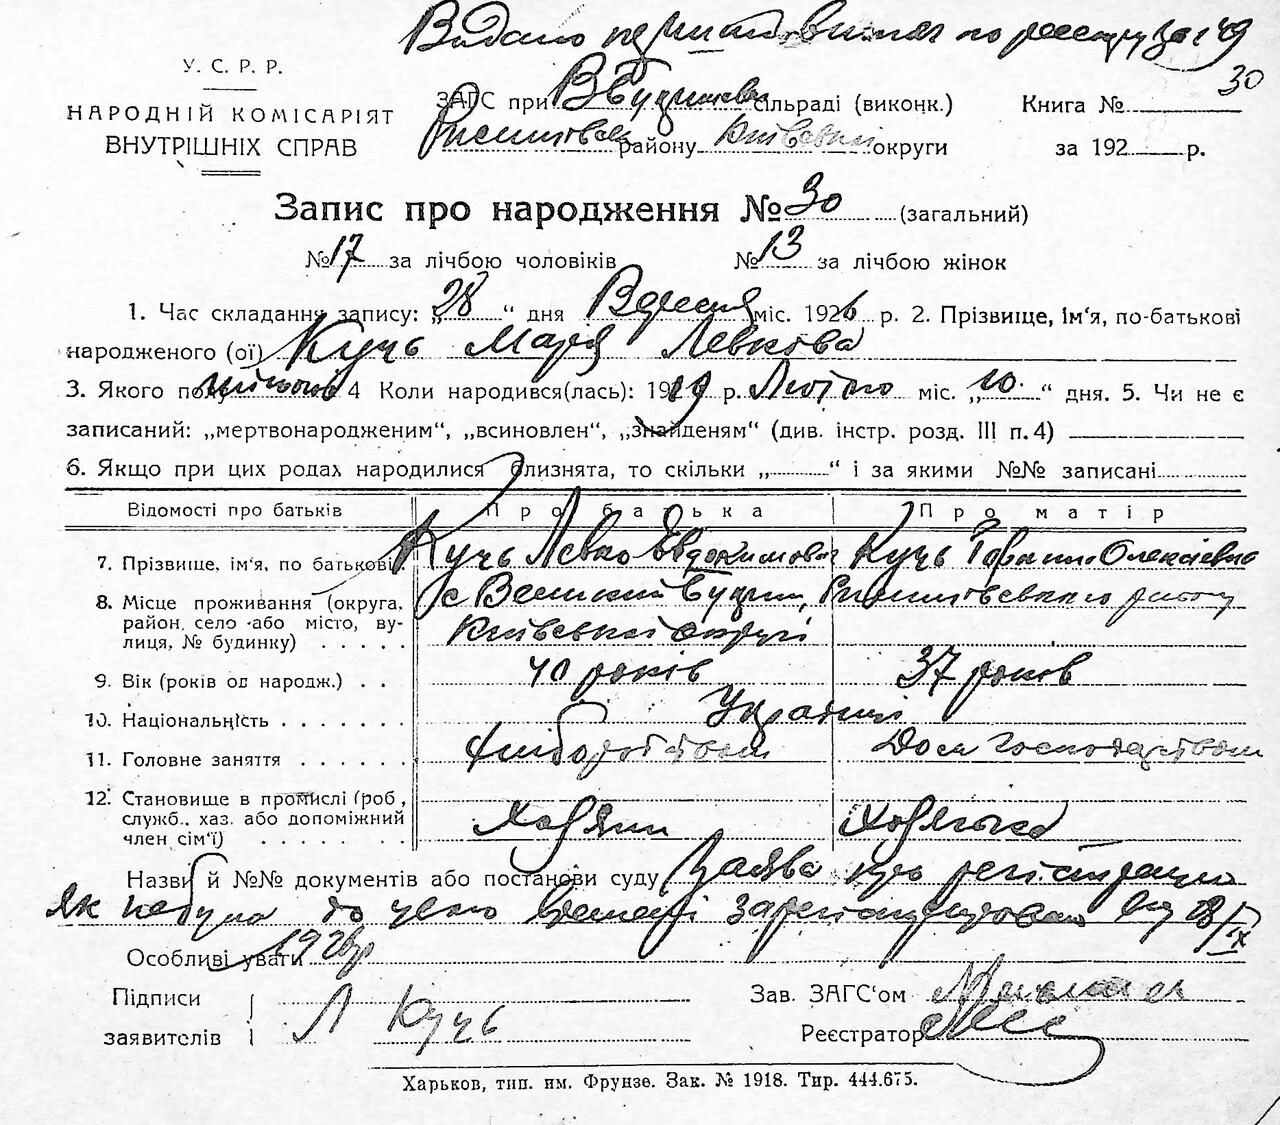 Видано по реєстру за № 49
У. С. Р. Р.
НАРОДНІЙ КОМІСАРІЯТ
ВНУТРІШНІХ СПРАВ
ЗАГС при В Будищовск сільраді (виконк.) Книга № 30
району Київської округи за 192 р.
Запис про народження № 30 (загальний)
№ 17 за лічбою чоловіків № 13 за лічбою жінок
1. Час складання запису: „28“ дня Вересня міс. 1926 р. 2. Прізвище, ім'я, по-батькові
народженого (ої) Кучь Марія Левкова
3. Якого полу жіночої 4 Коли народився(лась): 1919 р. Лютого міс. „10.“ дня. 5. Чи не є
записаний: „мертвонародженим“, „всиновлен“, „знайденям“ (див. інстр. розд. III п. 4)
6. Якщо при цих родах народилися близнята, то скільки „ “ і за якими №№ записані
Відомості про батьків Про батька Про матір
7. Прізвище, ім'я, по батькові Кучь Левко Евдокимович Кучь Олексіевна
8. Місце проживання (округа, с Великий Будищ, району
район, село або місто, ву- Київської округи
лиця, № будинку) . . . . .
9. Вік (років од народж.) . . 40 років 37 років
10. Національність . . . . . . . Українці
11. Головне заняття . . . . . . Хліборобством Дом Господарством
12. Становище в промислі (роб.,
служб., хаз. або допоміжний Хазяин Хозяйка
член сім'ї) . . . . . . .
Назви й №№ документів або постанови суду Заява про регістрацію
як небула до цього времені зарегістрірована від 28/IX
Особливі уваги 1926р
Підписи Зав. ЗАГС'ом
заявителів Л Кучь Реєстратор
Харьков, тип. им. Фрунзе. Зак. № 1918. Тир. 444.675.